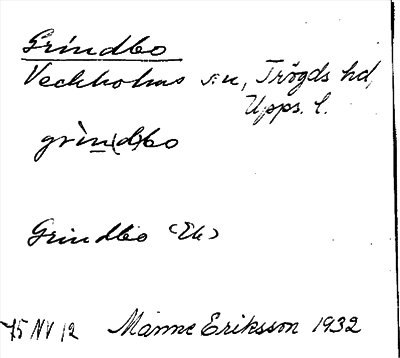 Grindbo
Veckholms sn, Trögds hd,
Upps. l.
grìn(d)bo
Grindbo (Ek)
75 NV 12 Manne Eriksson 1932